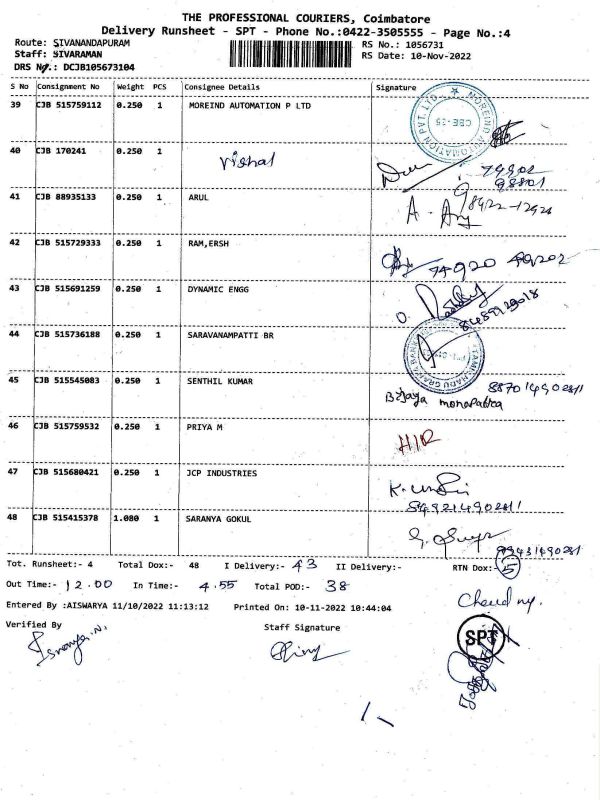 THE PROFESSIONAL COURIERS, Coimbatore
Delivery Runsheet - SPT - Phone No.:0422-3505555 - Page No.:4
Route: SIVANANDAPURAM RS No.: 1056731
Staff: SIVARAMAN RS Date: 10-Nov-2022
DRS No.: DCJB105673104
S No Consignment No Weight PCS Consignee Details Signature
39 CJB 515759112 0.250 1 MOREIND AUTOMATION P LTD
MOREIND AUTOMATION PVT. LTD
CBE-35
40 CJB 170241 0.250 1 Vishal
41 CJB 88935133 0.250 1 ARUL
42 CJB 515729333 0.250 1 RAM,ERSH
43 CJB 515691259 0.250 1 DYNAMIC ENGG
44 CJB 515736188 0.250 1 SARAVANAMPATTI BR
45 CJB 515545083 0.250 1 SENTHIL KUMAR
46 CJB 515759532 0.250 1 PRIYA M
47 CJB 515680421 0.250 1 JCP INDUSTRIES
48 CJB 515415378 1.080 1 SARANYA GOKUL
Tot. Runsheet:- 4 Total Dox:- 48 I Delivery:- 43 II Delivery:- RTN Dox:- 5
Out Time:- 12.00 In Time:- 4.55 Total POD:- 38
Entered By :AISWARYA 11/10/2022 11:13:12 Printed On: 10-11-2022 10:44:04
Verified By Staff Signature
SPT